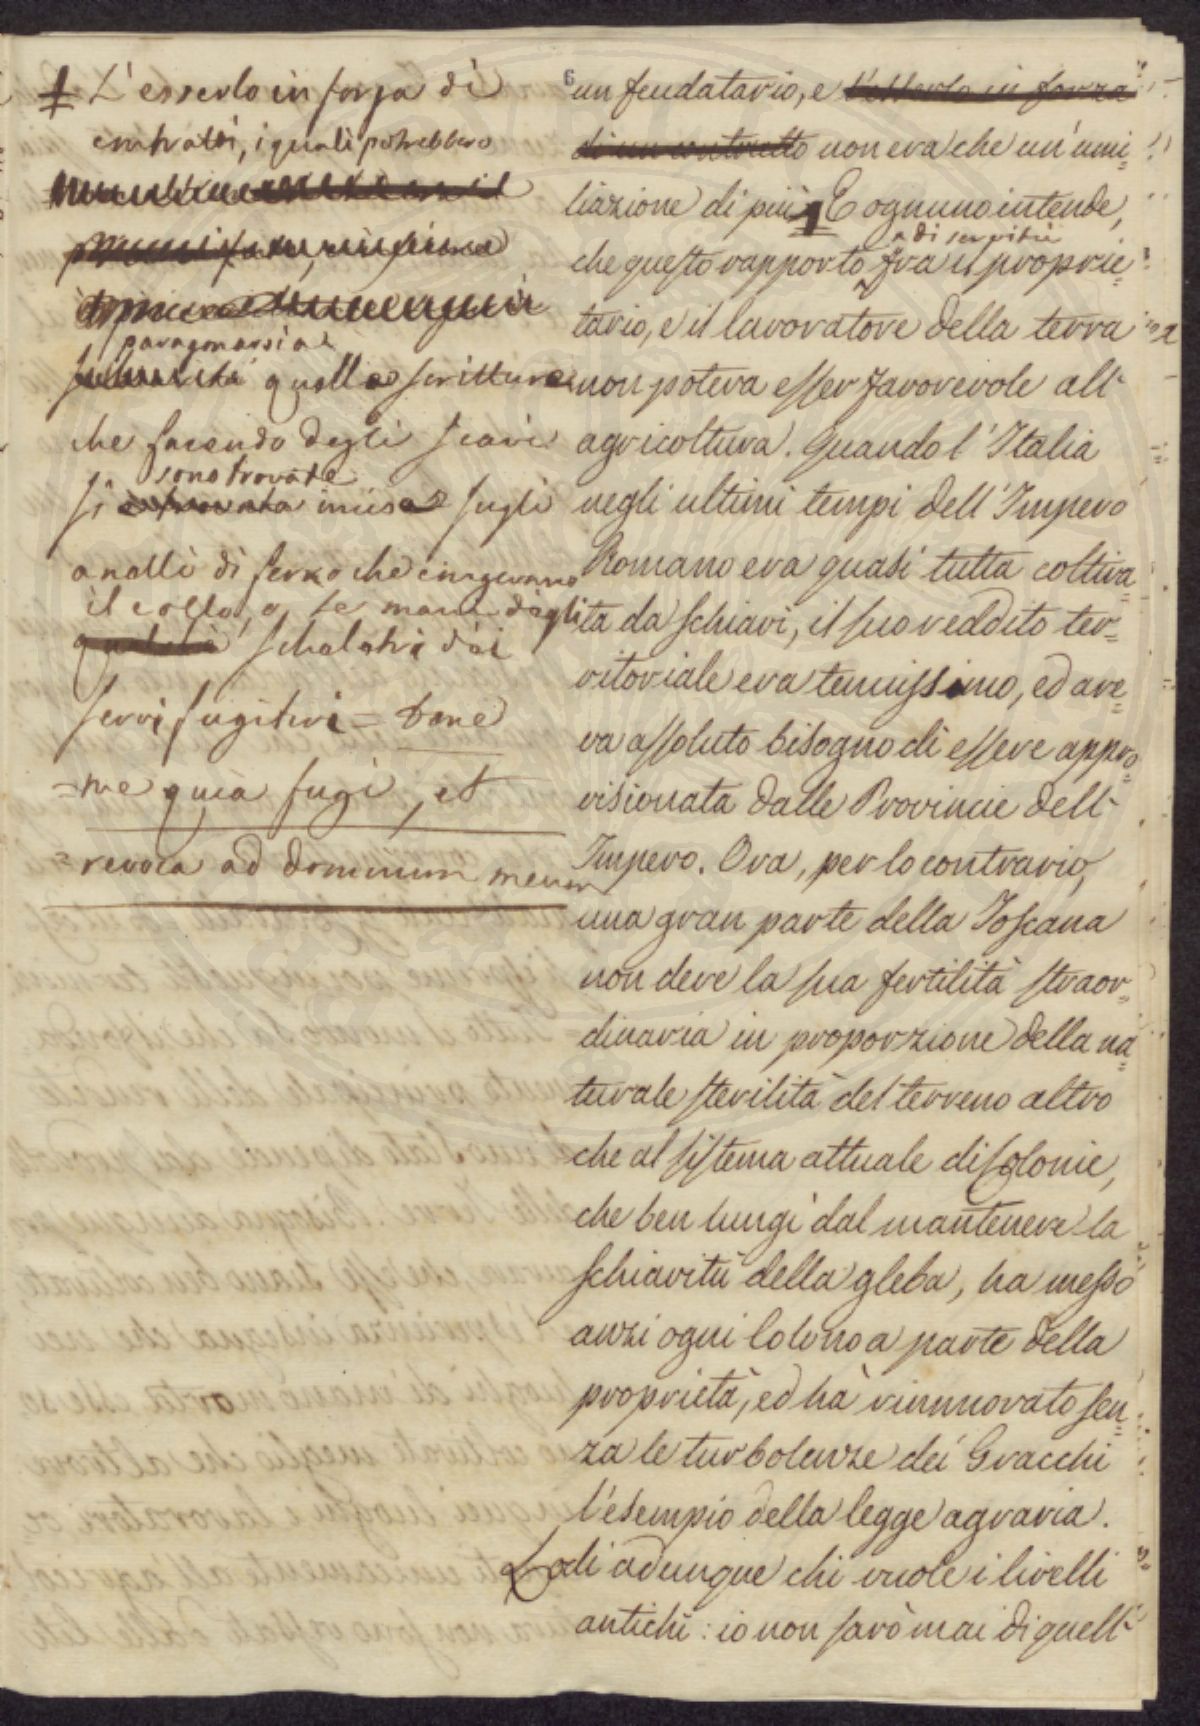 ǂ L'esserlo in forza di
contratti, i quali potrebbero
paragonarsi a
quelle scritture
che facendo degli scavi
sono trovate
si incise sugli
anelli di ferro che cingevano
il collo, o le mani degli
scheletri dei
servi fugitivi = tene
= me quia fugi, et
= revoca ad dominum meum
6
un feudatario, e l'esserlo in forza
di un contratto non era che un'umi=
liazione di più E ognuno intende,
di servitù
che questo rapporto fra il proprie=
tario, e il lavoratore della terra
non poteva esser favorevole all'
agricoltura. Quando l'Italia
negli ultimi tempi dell'Impero
Romano era quasi tutta coltiva=
ta da schiavi, il suo reddito ter=
ritoriale era tenuissimo, ed ave=
va assoluto bisogno di essere appro=
visionata dalle Provincie dell'
Impero. Ora, per lo contrario,
una gran parte della Toscana
non deve la sua fertilità straor=
dinaria in proporzione della na=
turale sterilità del terreno altro
che al sistema attuale di Colonie,
che ben lungi dal mantenere la
schiavitù della gleba, ha messo
anzi ogni Colono a parte della
proprietà, ed hà rinnuovato sen=
za le turbolenze dei Gracchi
l'esempio della legge agraria.
Lodi adunque chi vuole i livelli
antichi: io non sarò mai di quell'